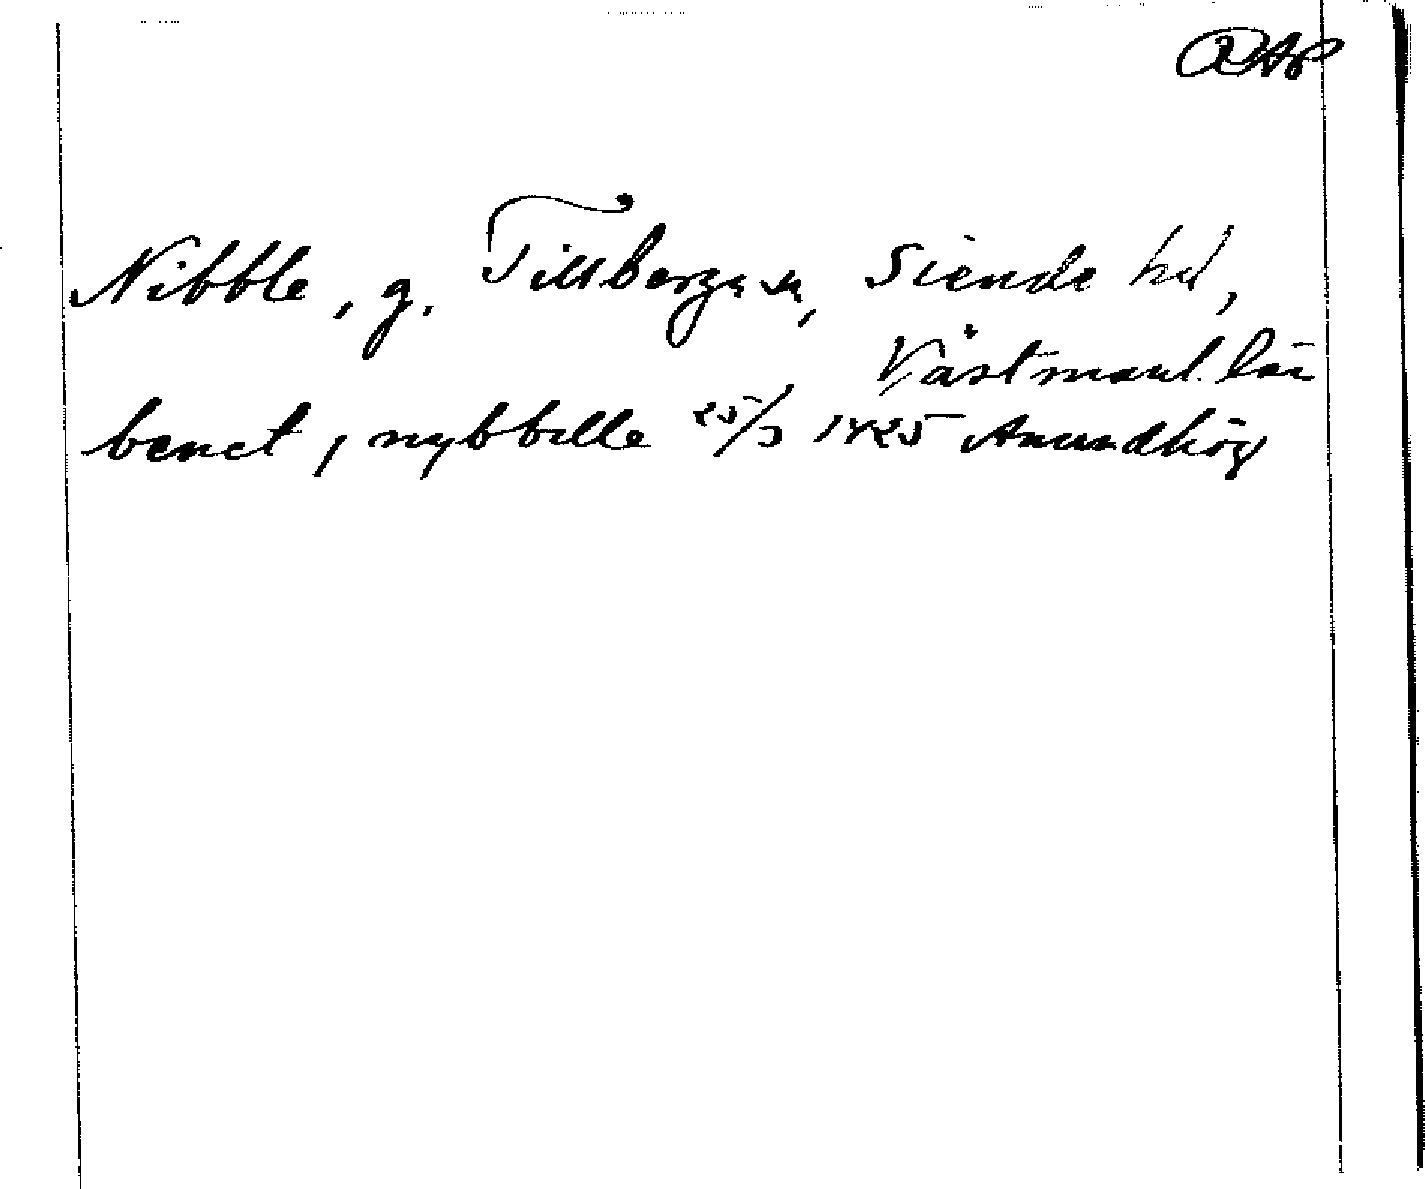 RAP
Nibble, g. Tillberga sn, Siende hd,
Västmanl. län
benct, nybbelle 25/3 1425 Amundhög